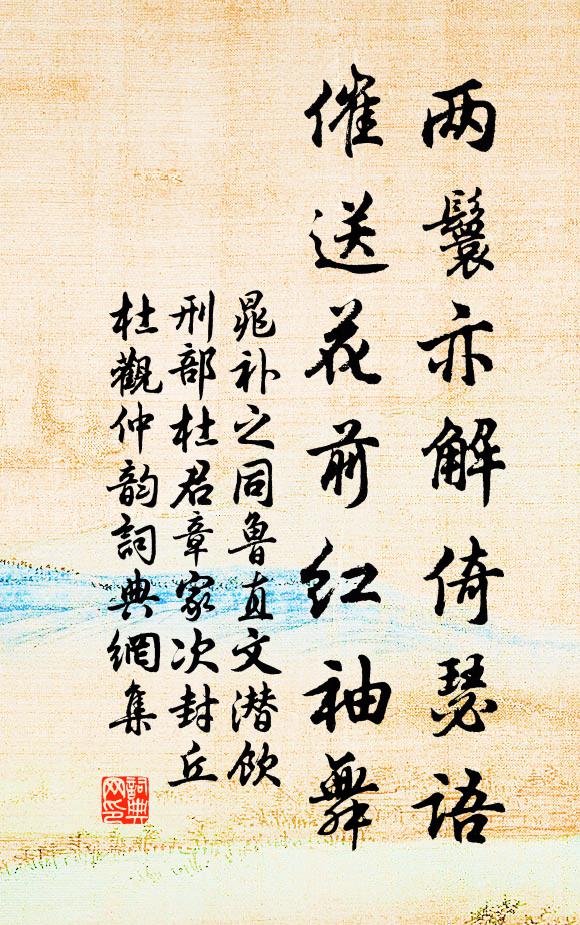 两鬟亦解倚瑟语
催送花前红袖舞
晁补之同鲁直文潜饮
刑部杜君章家次封丘
杜觀仲韵詞典網集
詞典网印